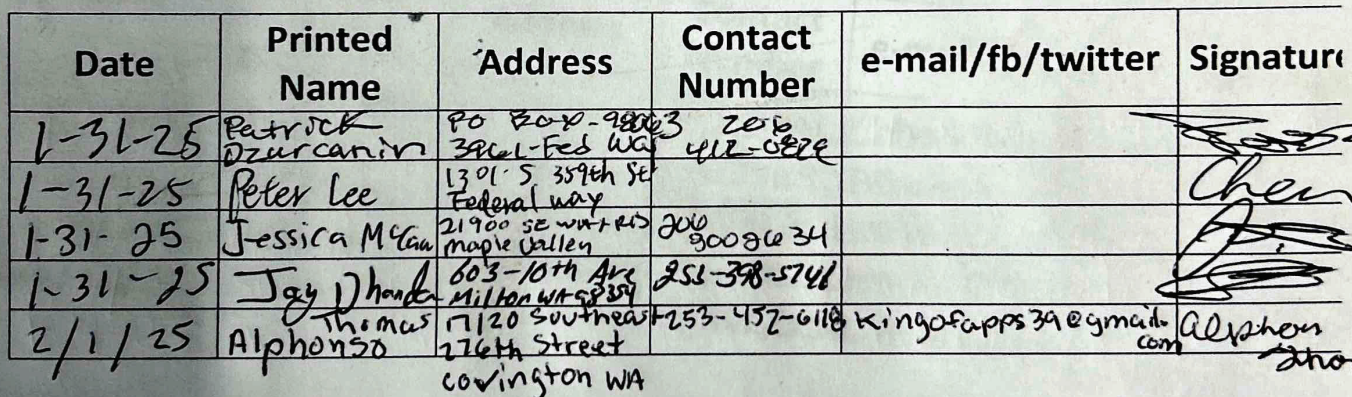 Date Printed Name Address Contact Number e-mail/fb/twitter Signature
1-31-25 Patrick Dzurcanin PO Box-98063 3961-Fed Way 206 412-0828
1-31-25 Peter Lee 1301 S 359th St Federal way
1-31-25 Jessica 21900 SE Maple Valley 206
1-31-25 Jay Dhanda 603-10th Ave Milton WA 98354
2/1/25 Thomas Alphonso 17120 Southeast 276th Street Covington WA 253-452-6118 Kingofapps39@gmail.com